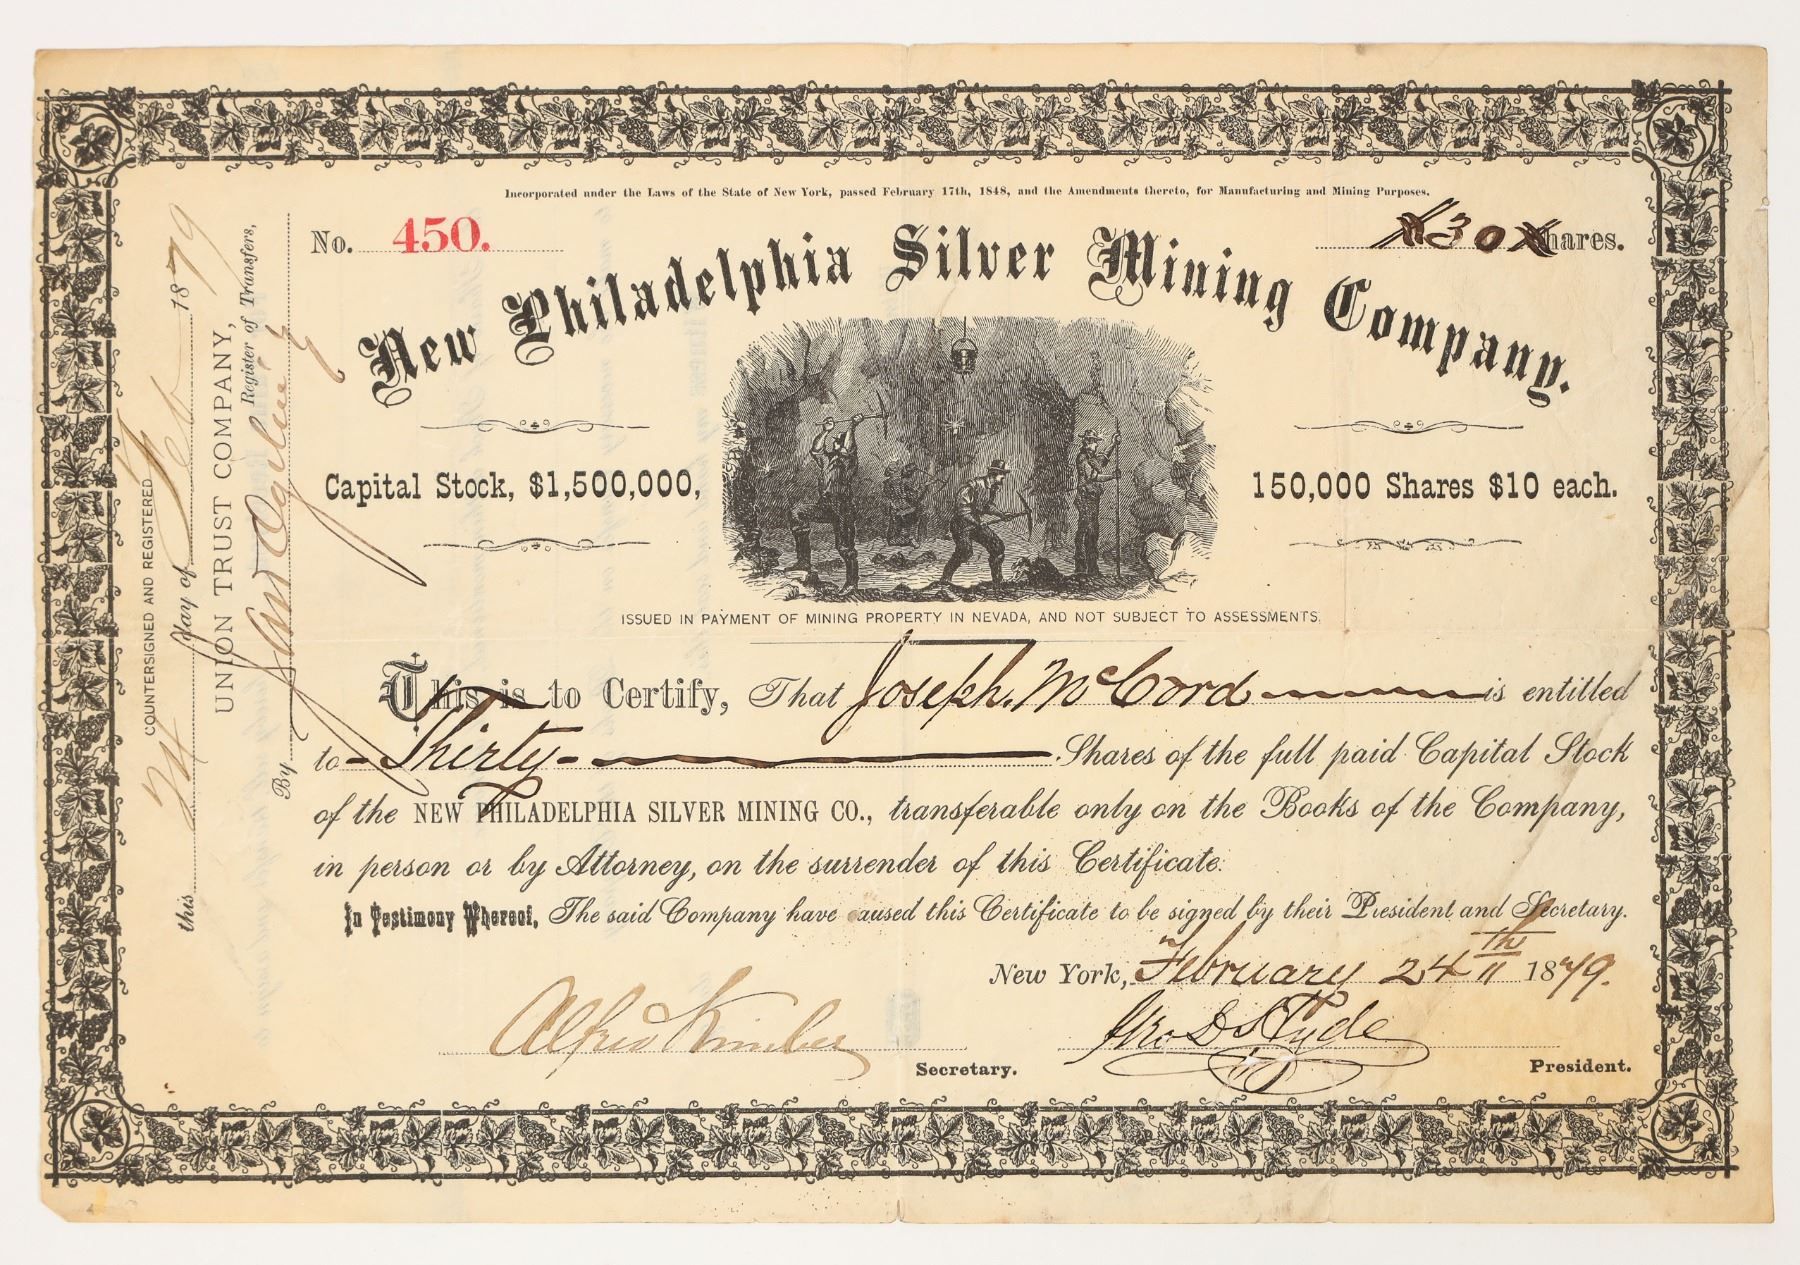 Incorporated under the Laws of the State of New York, passed February 17th, 1848, and the Amendments thereto, for Manufacturing and Mining Purposes.
No. 450.
30 Shares.
New Philadelphia Silver Mining Company.
Capital Stock, $1,500,000,
150,000 Shares $10 each.
ISSUED IN PAYMENT OF MINING PROPERTY IN NEVADA, AND NOT SUBJECT TO ASSESSMENTS.
This is to Certify, That Joseph. McCord is entitled
to - Thirty - Shares of the full paid Capital Stock
of the NEW PHILADELPHIA SILVER MINING CO., transferable only on the Books of the Company,
in person or by Attorney, on the surrender of this Certificate.
In Testimony Whereof, The said Company have caused this Certificate to be signed by their President and Secretary.
New York, February 24th 1879.
Alfred Kimber
Secretary.
Geo D
President.
COUNTERSIGNED AND REGISTERED
this 24 day of Feb 1879
UNION TRUST COMPANY,
Register of Transfers,
By Ogilvie